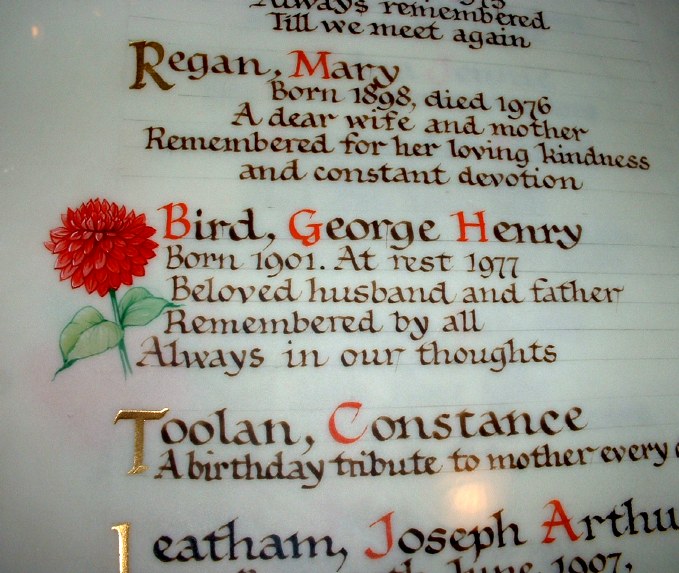 Always remembered
Till we meet again
Regan, Mary
Born 1898, died 1976
A dear wife and mother
Remembered for her loving kindness
and constant devotion
Bird, George Henry
Born 1901. At rest 1977
Beloved husband and father
Remembered by all
Always in our thoughts
Toolan, Constance
A birthday tribute to mother every
Leatham, Joseph Arthu
June, 1907,